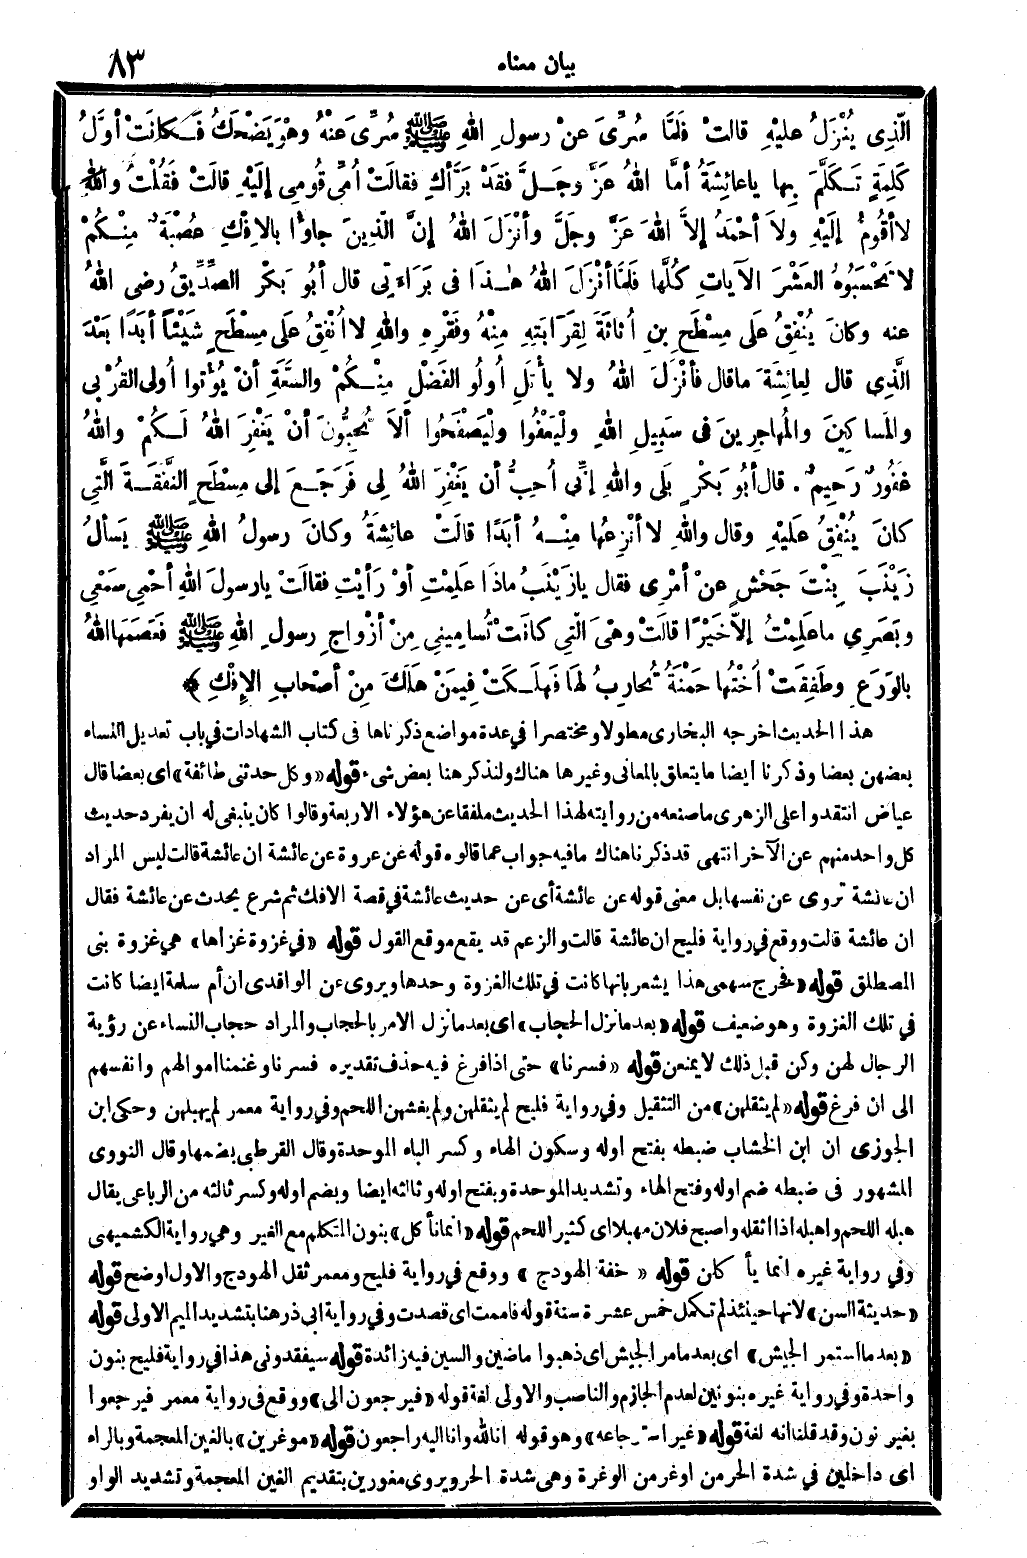 بيان معناه ٨٣
الَّذِي يُنْزَلُ عليْهِ قالتْ فَلَمَّا سُرِّيَ عنْ رسولِ اللهِ ﷺ سُرِّيَ عَنْهُ وهْوَ يَضْحَكُ فَكانَتْ أوَّلُ
كَلِمَةٍ تَكَلَّمَ بِها ياعائِشَةُ أمَّا اللهُ عزَّ وجَلَّ فقَدْ بَرَّأكِ فقالَتْ أُمِّي قُومِي إلَيْهِ قالَتْ فَقُلْتُ واللهِ
لاأقُومُ إلَيْهِ ولاَ أحْمَدُ إلاَّ اللهَ عَزَّ وجَلَّ وأنْزَلَ اللهُ إنَّ الَّذِينَ جاؤُا بالإفْكِ عُصْبَةٌ مِنْكُمْ
لا تَحْسَبُوهُ العَشْرَ الآياتِ كُلَّها فَلَمَّا أنْزَلَ اللهُ هٰذَا فى بَرَاءَتِي قال أبُو بَكْرٍ الصِّدِّيقُ رضى اللهُ
عنه وكانَ يُنْفِقُ عَلَى مِسْطَحِ بنِ أُثاثَةَ لِقَرَابَتِهِ مِنْهُ وفَقْرِهِ واللهِ لاأُنْفِقُ عَلَى مِسْطَحٍ شَيْئاً أبَدًا بَعْدَ
الَّذِى قال لِعائِشَةَ ماقال فأنْزَلَ اللهُ ولا يأْتَلِ أُولُو الفَضْلِ مِنْكُمْ والسَّعَةِ أنْ يُؤْتوا أُولى القُرْبى
والمَساكِينَ والمُهاجِرِينَ فى سَبِيلِ اللهِ ولْيَعْفُوا ولْيَصْفَحُوا ألاَ تُحِبُّونَ أنْ يَغْفِرَ اللهُ لَكُمْ واللهُ
غَفُورٌ رَحِيمٌ . قال أبُو بَكْرٍ بَلَى واللهِ إنِّى أُحِبُّ أن يَغْفِرَ اللهُ لِى فَرَجَعَ إلى مِسْطَحٍ النَّفَقَةَ الَّتِي
كانَ يُنْفِقُ عَلَيْهِ وقال واللهِ لاأنْزِعُها مِنْهُ أبَدًا قالَتْ عائِشَةُ وكانَ رسولُ اللهِ ﷺ يَسألُ
زَيْنَبَ بِنْتَ جَحْشٍ عنْ أمْرِى فقال يازَيْنَبُ ماذَا عَلِمْتِ أوْ رَأيْتِ فقالَتْ يارسولَ اللهِ أحْمِى سَمْعِى
وبَصَرِي ماعَلِمْتُ إلاّ خَيْرًا قالَتْ وهْىَ الَّتِى كانَتْ تُسامِينِى مِنْ أزْواجِ رسولِ اللهِ ﷺ فَعَصَمَها اللهُ
بالوَرَعِ وطَفِقَتْ أُخْتُها حَمْنَةُ تُحارِبُ لَهَا فَهَلَكَتْ فِيمَنْ هَلَكَ مِنْ أصْحابِ الإفْكِ ﴾
هذا الحديث اخرجه البخارى مطولا ومختصرا في عدة مواضع ذكرناها فى كتاب الشهادات في باب تعديل النساء
بعضهن بعضا وذكرنا ايضا ما يتعلق بالمعانى وغيرها هناك ولنذكر هنا بعض شىء قوله «وكل حدثنى طائفة» اى بعضا قال
عياض انتقدوا على الزهرى ما صنعه من روايته لهذا الحديث ملفقا عن هؤلاء الاربعة وقالوا كان ينبغى له ان يفرد حديث
كل واحد منهم عن الآخر انتهى قد ذكرنا هناك مافيه جواب عما قالوه قوله عن عروة عن عائشة ان عائشة قالت ليس المراد
ان عائشة تروى عن نفسها بل معنى قوله عن عائشة أى عن حديث عائشة في قصة الافك ثم شرع يحدث عن عائشة فقال
ان عائشة قالت ووقع في رواية فليح ان عائشة قالت والزعم قد يقع موقع القول قوله «في غزوة غزاها» هي غزوة بنى
المصطلق قوله «فخرج سهمى هذا يشعر بانها كانت في تلك الغزوة وحدها ويروى عن الواقدى ان أم سلمة ايضا كانت
في تلك الغزوة وهو ضعيف قوله «بعد ما نزل الحجاب» اى بعد ما نزل الامر بالحجاب والمراد حجاب النساء عن رؤية
الرجال لهن وكن قبل ذلك لا يمنعن قوله «فسرنا» حتى اذا فرغ فيه حذف تقديره فسرنا وغنمنا اموالهم وانفسهم
الى ان فرغ قوله «لم يثقلهن» من التثقيل وفي رواية فليح لم يثقلهن ولم يغشهن اللحم وفي رواية معمر لم يهبلهن وحكى ابن
الجوزى ان ابن الخشاب ضبطه بفتح اوله وسكون الهاء وكسر الباء الموحدة وقال القرطبى بضمها وقال النووى
المشهور فى ضبطه ضم اوله وفتح الهاء وتشديد الموحدة وبفتح اوله وثالثه ايضا وبضم اوله وكسر ثالثه من الرباعى يقال
هبله اللحم واهبله اذا اثقله واصبح فلان مهبلا اى كثير اللحم قوله «انما نأكل» بنون المتكلم مع الغير وهي رواية الكشميهنى
وفي رواية غيره انما يأكلن قوله « خفة الهودج » ووقع في رواية فليح ومعمر ثقل الهودج والاول اوضح قوله
«حديثة السن» لانها حينئذ لم تكمل خمس عشرة سنة قوله فاممت اى قصدت وفي رواية ابى ذر هنا بتشديد الميم الاولى قوله
«بعد ما استمر الجيش» اى بعد ما مر الجيش اى ذهبوا ماضين والسين فيه زائدة قوله سيفقدونى هذا في رواية فليح بنون
واحدة وفي رواية غيره بنونين لعدم الجازم والناصب والاولى لغة قوله «فيرجعون الى» ووقع فى رواية معمر فيرجعوا
بغير نون وقد قلنا انه لغة قوله «غير استرجاعه» وهو قوله انا لله وانا اليه راجعون قوله «موغرين» بالغين المعجمة وبالراء
اى داخلين في شدة الحر من اوغر من الوغرة وهى شدة الحر ويروى مغورين بتقديم الغين المعجمة وتشديد الواو